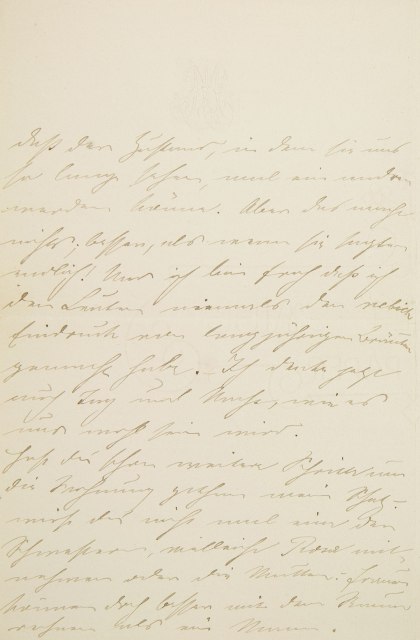 daß der Zustand, in dem sie uns
so lange sehen, mal ein andrer
werden könne. Aber das macht
nichts; besser, als wenn sie sagten
endlich! Und ich bin froh daß ich
den Leuten niemals den
Eindruck einer langjährigen Braut
gemacht habe. Ich denke jetzt
nur Tag und Nacht, wie es
nun wohl sein wird.
Hast du schon weitere Schritte um
die Wohnung gethan mein Schatz
willst du nicht mal eine der
Schwestern, vielleicht Rosa mit-
nehmen oder die Mutter; Frauen
können doch besser mit den
rechnen als ein Mann.